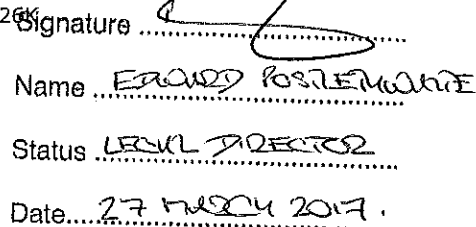 26K
Signature
Name EDWARD POSTLETHWAITE
Status LEGAL DIRECTOR
Date 27 MARCH 2017.